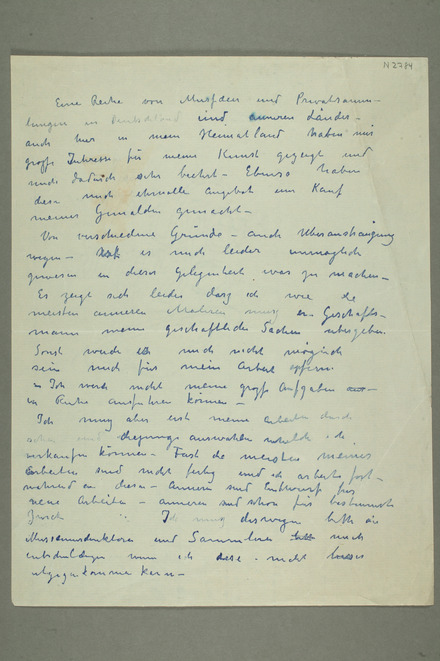 N 2784
Eine Reihe von Musseen und Privatsamm-
lungen in Deutschland und anneren Länder-
auch hier in mein Heimatland haben mir
groffe Interesse für meine Kunst gezeigt und
mich dadurch sehr beehrt - Ebenso haben
diese mich ehrnalle Angebot um Kauf
meiner Gemälden gemacht -
Von verschiedene Gründe - auch Überansträngung
wegen - es mich leider unmöglich
gewesen in dieser Gelegenheit was zu machen -
Es zeigt sich leider dazz ich wie de
meisten anneren Malern muz en Geschäfts-
mann meine geschäftliche Sachen übergeben
Sonst werde ich mich nicht möglich
sein mich für mein Arbeit opfern
Ich werde nicht meine groffe Aufgaben
in Ruhe ausführen können -
Ich muz aber erst meine Arbeiten durch
sehen und auswählen
verkaufen können - Fast die meisten meines
Arbeiten sind nicht fertig und ich arbeite fort-
während an diese - annere sind Entwurf für
neue Arbeiten - anneren sind schon für bestimmte
Zweck Ich muz deswegen bitte die
Museumsdirektoren und Sammleren mich
entschuldigen wenn ich diese nicht